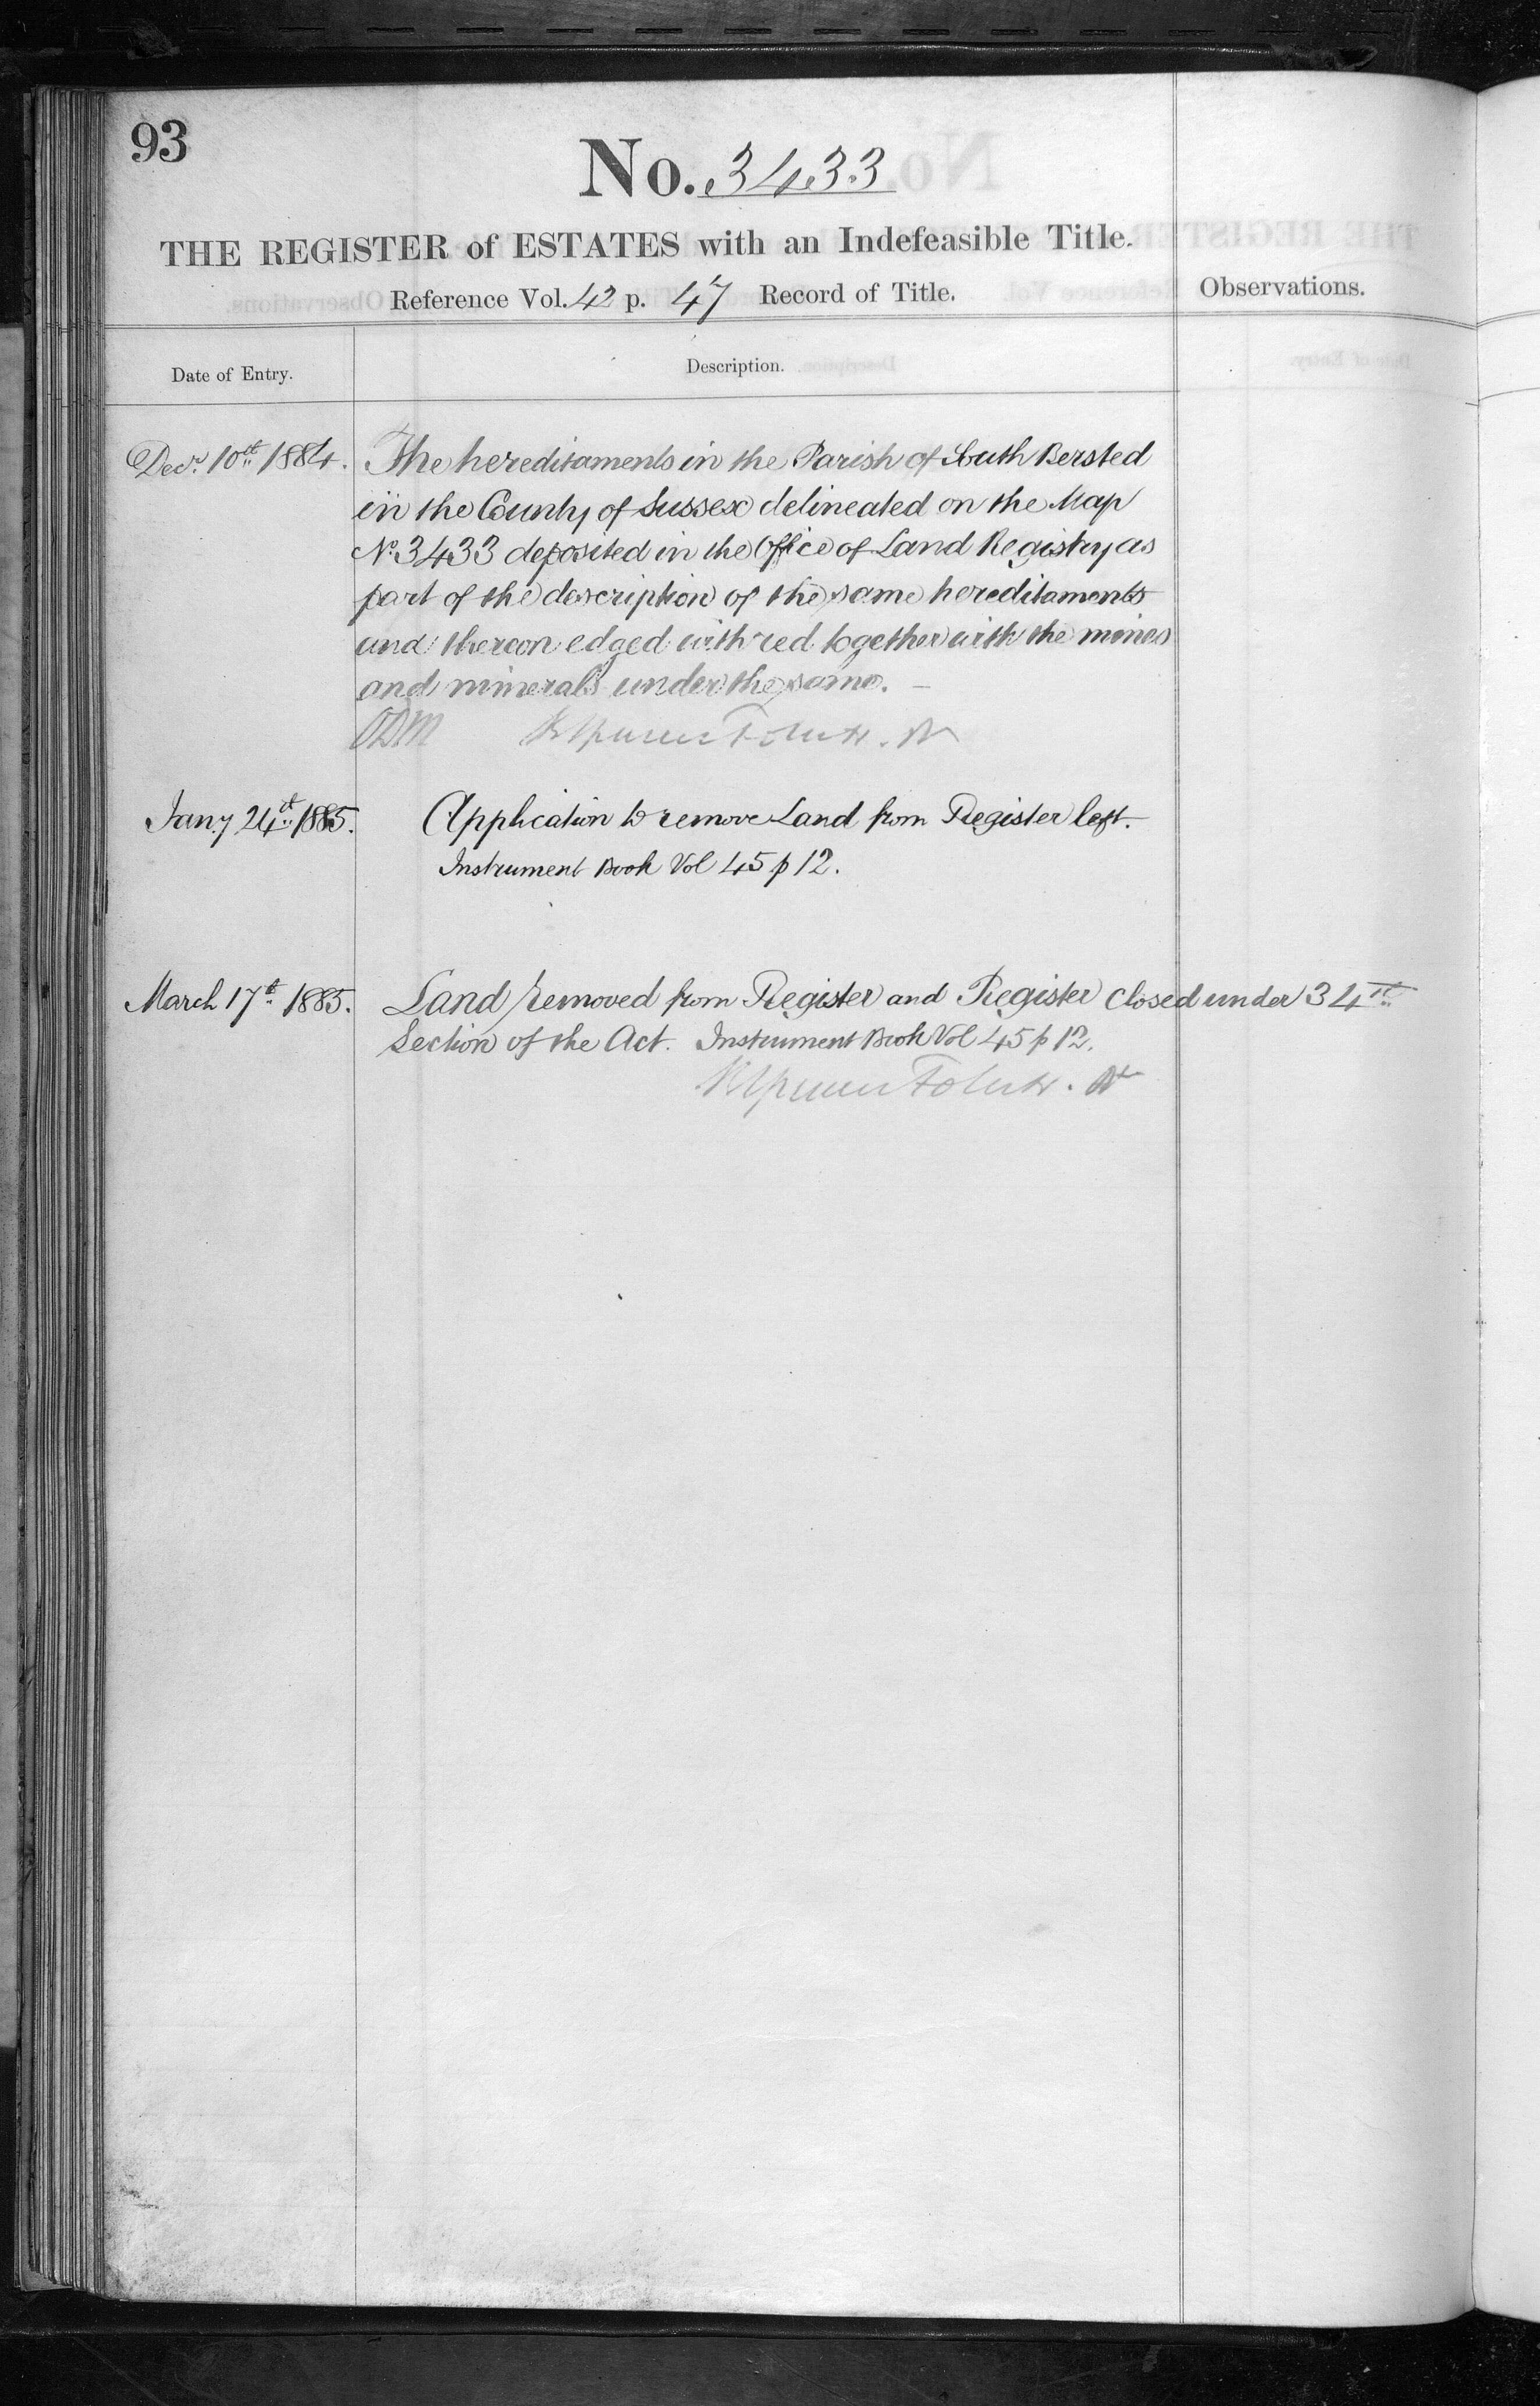 93
No. 3433
THE REGISTER of ESTATES with an Indefeasible Title.
Reference Vol. 42 p. 47 Record of Title.
Observations.
Date of Entry.
Description.
Decr. 10th 1884. The hereditaments in the Parish of South Bersted
in the County of Sussex delineated on the Map
No. 3433 deposited in the Office of Land Registry as
part of the description of the same hereditaments
and thereon edged with red together with the mines
and minerals under the same. –
Jany 24th 1885. Application to remove Land from Register left.
Instrument Book Vol 45 p 12.
March 17th 1885. Land removed from Register and Register closed under 34th
Section of the Act. Instrument Book Vol 45 p 12.